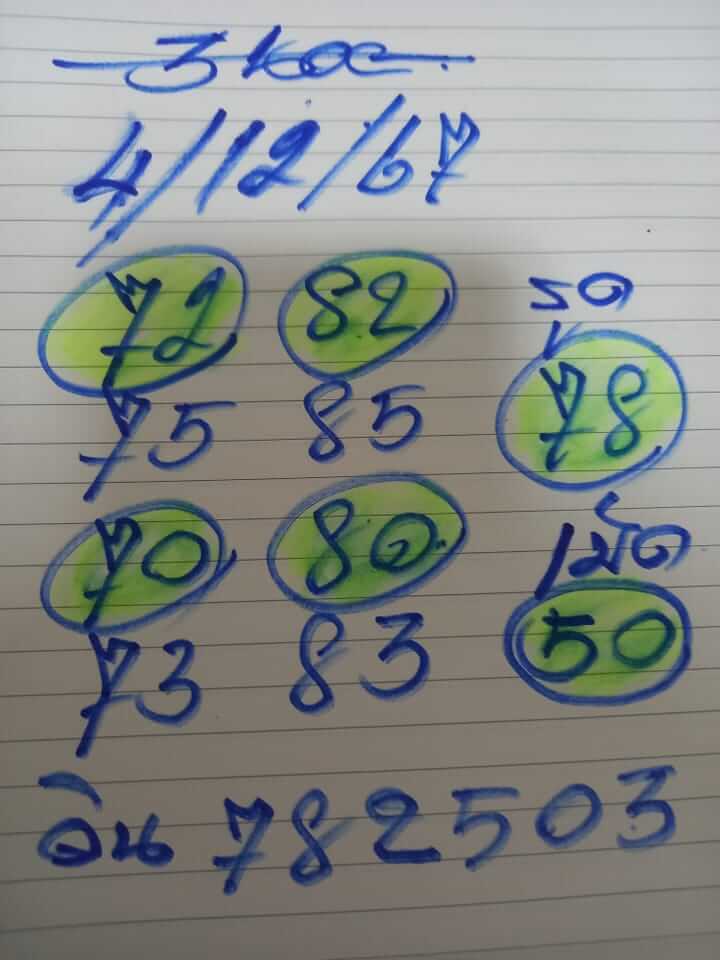 4/12/67
72 82 รถ
75 85 78
70 80 เม็ด
73 83 50
วิน 782503